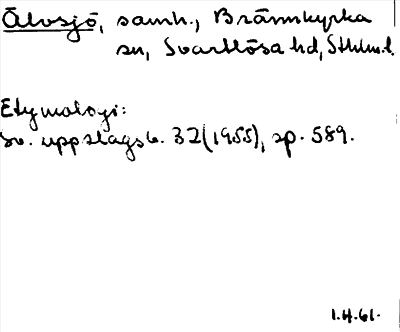 Älvsjö, samh., Brännkyrka
sn, Svartlösa hd, Sthlm.l.
Etymologi:
Sv. uppslagsb. 32 (1955), sp. 589.
1.4.61.